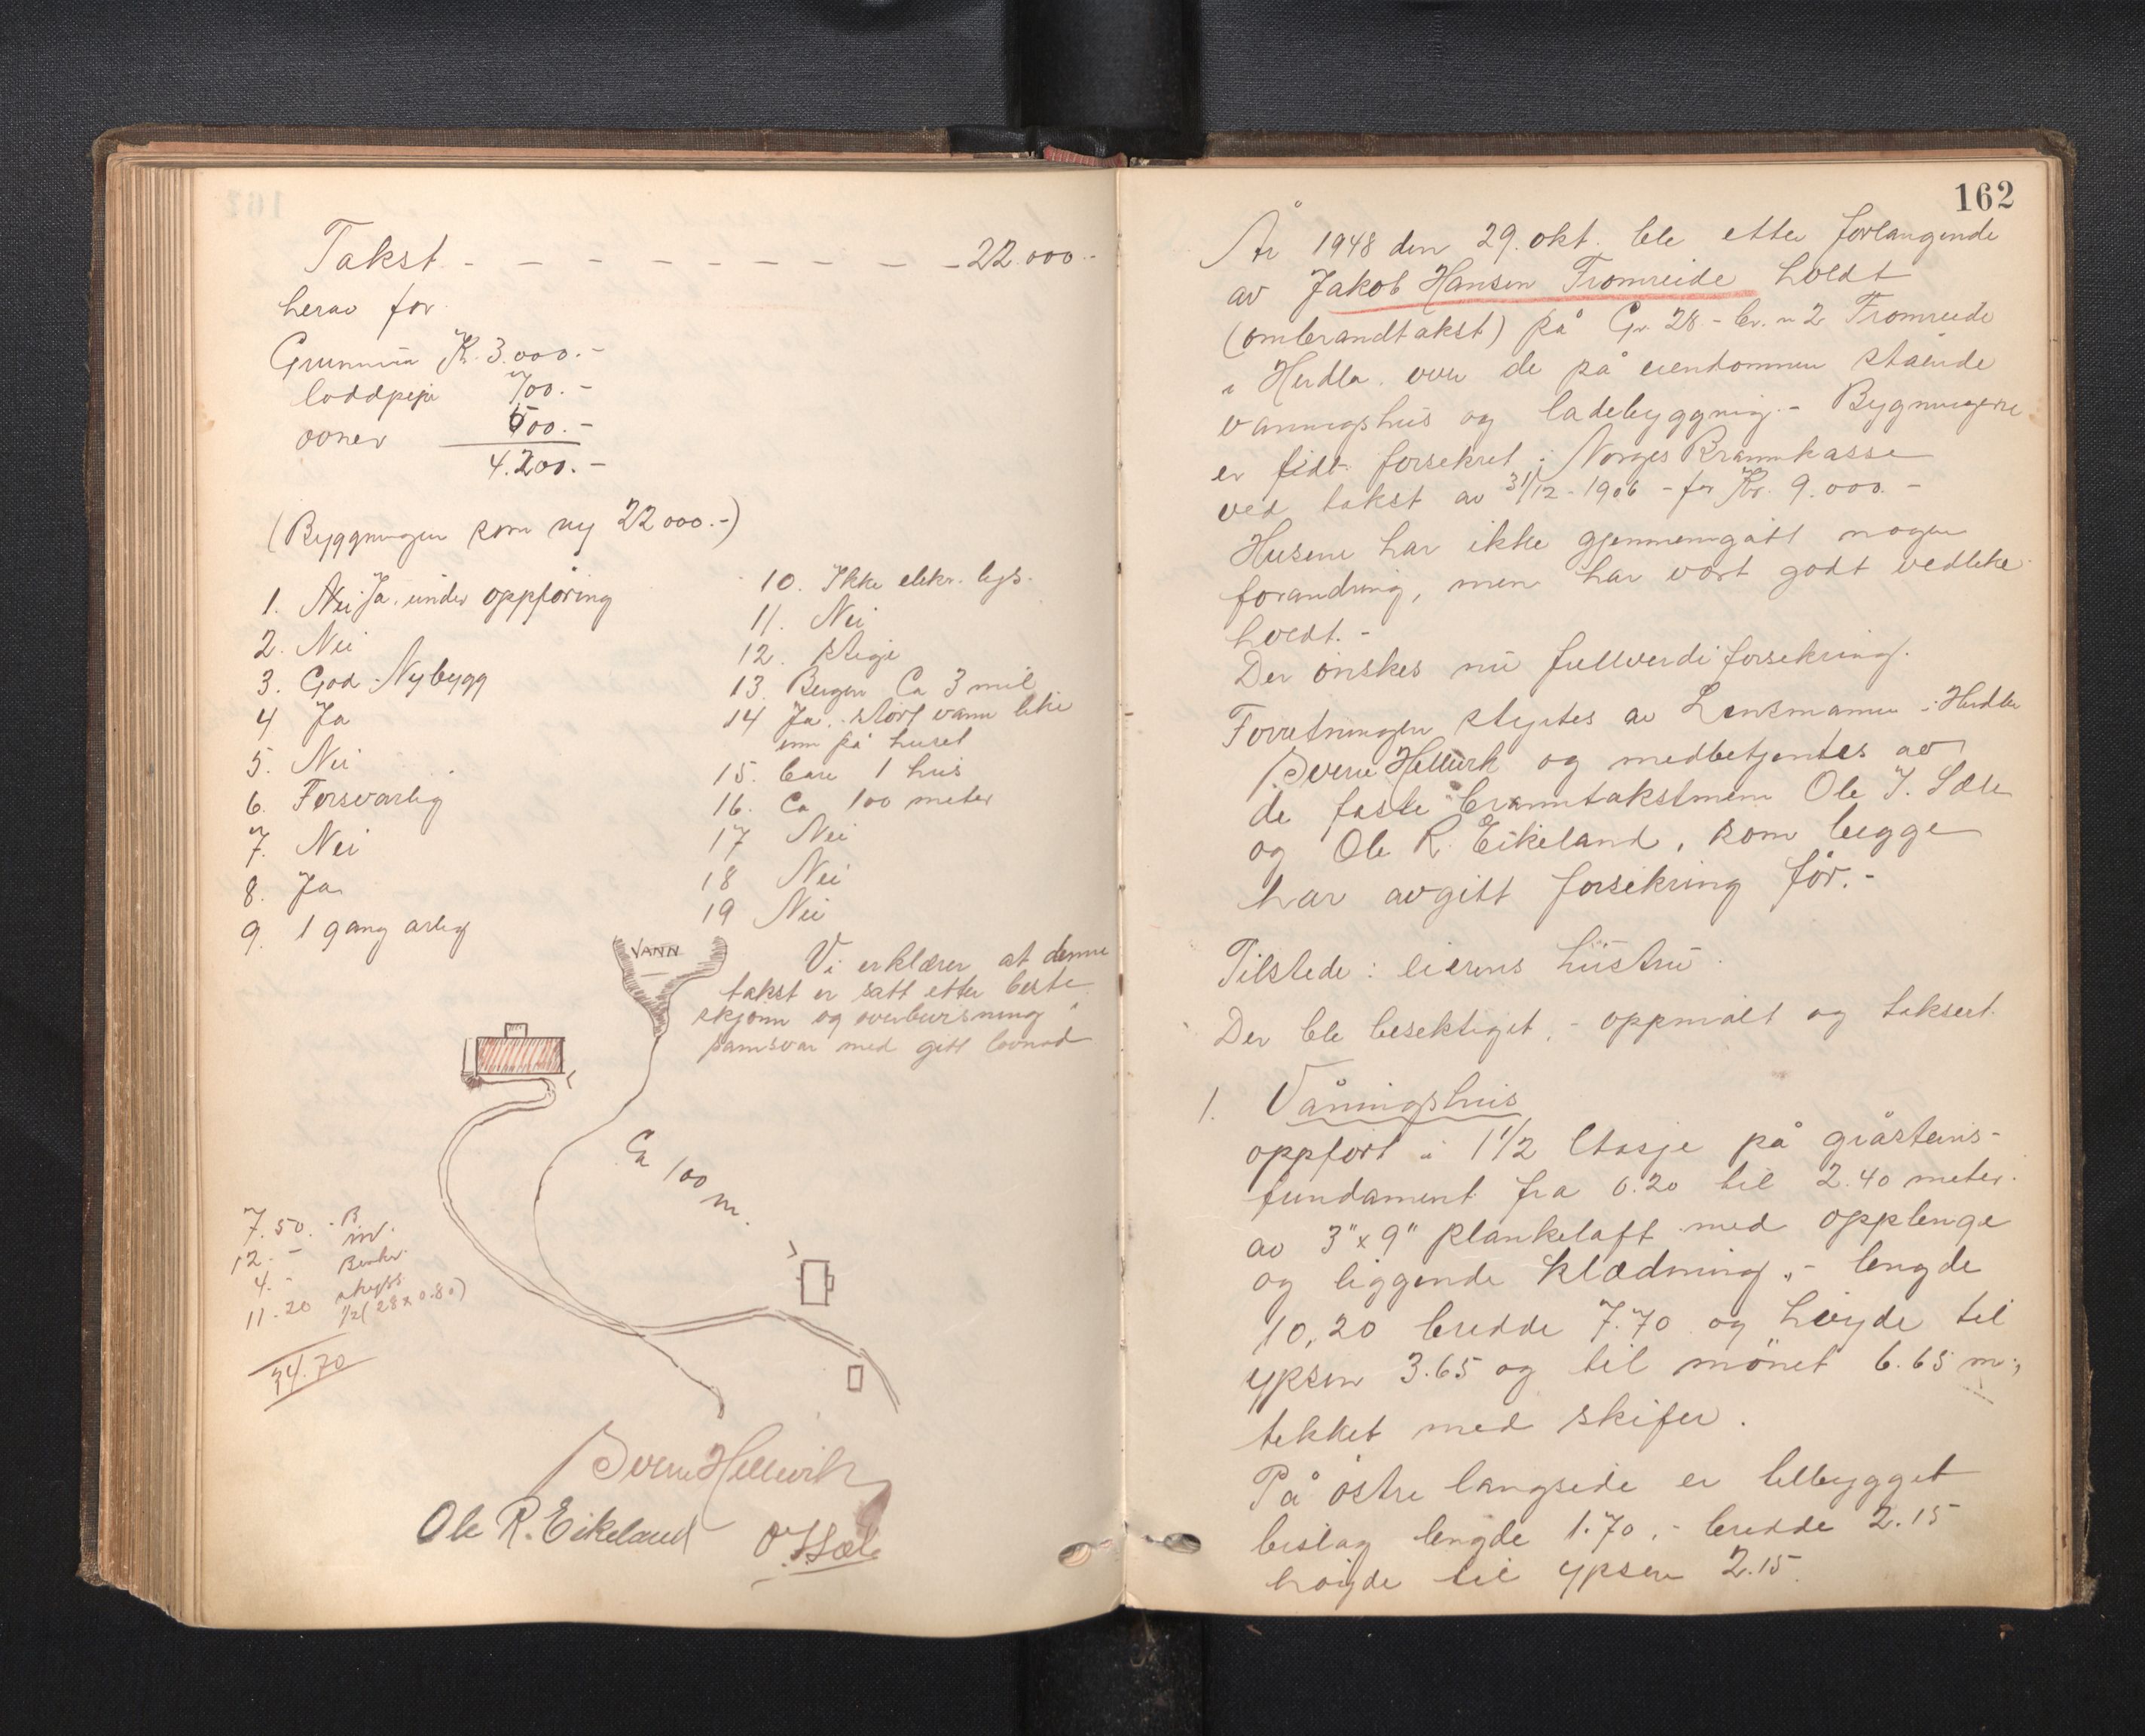 Takst - - - - - - - - - 22.000.-
herav for
Grunmur Kr. 3.000.-
loddpipe 700.-
ovner 500.-
4.200.-
(Byggningen som ny 22000.-)
1. Nei Ja. under oppføring
2. Nei
3. God - Nybygg
4 Ja
5. Nei
6. Forsvarlig
7. Nei
8. Ja
9. 1 gang årlig
10. Ikke elekr. lys.
11. Nei
12. Stige
13. Bergen Ca 3 mil
14 Ja. stort vann like
inn på huset
15. bare 1 hus
16. Ca 100 meter
17 Nei
18 Nei
19 Nei
VANN
Vi erklærer at denne
takst er satt etter beste
skjønn og overbevisning i
samsvar med gitt lovnad
Ca 100 m.
7.50. - B
12. -
4. -
11.20 1/2 (28 x 0.80)
34.70
Sverre Hellevik
Ole R. Eikeland O J Sæle
162
År 1948 den 29. okt. ble etter forlangende
av Jakob Hansen Fromreide holdt
(ombrandtakst) på Gr. 28 - br. n 2 Fromreide
i Herdla. over de på eiendommen stående
våningshus og ladebyggning. - Bygningene
er fidt. forsekret i Norges Brannkasse
ved takst av 31/12 - 1906 - for Kr. 9.000. -
Husene har ikke gjennemgått nogen
forandring, men har vært godt vedlike
holdt. -
Der ønskes nu fullverdi forsekring.
Forretningen styrtes av Lensmannen i Herdla
Sverre Hellevik og medbetjentes av
de faste branntakstmenn Ole J. Sæle
og Ole R. Eikeland, som begge
har avgitt forsikring før. -
Tilstede: eierens hustru.
Der ble besektiget, - oppmålt og taksert.
1. Våningshus
oppført i 1 1/2 Etasje på gråsteins-
fundament fra 0.20 til 2.40 meter.
av 3" x 9" plankelaft med opplenge
og liggende klædning, - lengde
10,20 bredde 7.70 og høyde til
ypsen 3.65 og til mønet 6.65 m.,
tekket med skifer.
På østre langside er tilbygget
bislag lengde 1.70, - bredde 2.15
høyde til ypsen 2.15.